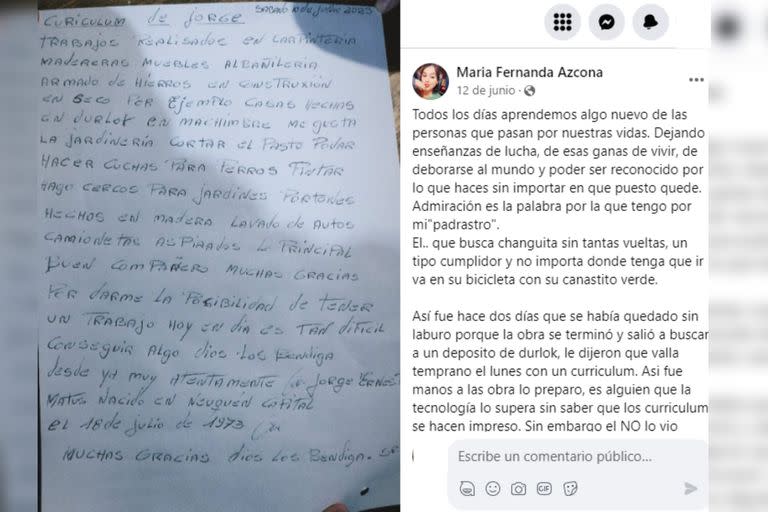 CURICULUM de JORGE SABADO 10 de JUNIO 2023
TRABAJOS REALISADOS EN CARPINTERIA
MADERERAS MUEBLES ALBAÑILERIA
ARMADO de HIERROS EN CONSTRUXIÓN
EN SECO POR EJEMPLO CASAS HECHAS
EN DURLOT EN MACHIMBRE ME GUSTA
LA JARDINERÍA CORTAR EL PASTO PODAR
HACER CUCHAS PARA PERROS PINTAR
HAGO CERCOS PARA JARDINES PORTONES
HECHOS EN MADERA LAVADO DE AUTOS
CAMIONETAS ASPIRADOS LO PRINCIPAL
BUEN COMPAÑERO MUCHAS GRACIAS
POR DARME LA POSIBILIDAD DE TENER
UN TRABAJO HOY EN DÍA ES TAN DIFICIL
CONSEGUIR ALGO DIOS LOS BENDIGA
desde YA MUY ATENTAMENTE JORGE ERNEST
MATUS NACIDO EN NEUQUÉN CAPITAL
EL 18 de JULIO de 1973
MUCHAS GRACIAS DIOS LOS BENDIGA.
Maria Fernanda Azcona
12 de junio
Todos los días aprendemos algo nuevo de las
personas que pasan por nuestras vidas. Dejando
enseñanzas de lucha, de esas ganas de vivir, de
deborarse al mundo y poder ser reconocido por
lo que haces sin importar en que puesto quede.
Admiración es la palabra por la que tengo por
mi"padrastro".
El.. que busca changuita sin tantas vueltas, un
tipo cumplidor y no importa donde tenga que ir
va en su bicicleta con su canastito verde.
Así fue hace dos días que se había quedado sin
laburo porque la obra se terminó y salió a buscar
a un deposito de durlok, le dijeron que valla
temprano el lunes con un curriculum. Asi fue
manos a las obra lo preparo, es alguien que la
tecnología lo supera sin saber que los curriculum
se hacen impreso. Sin embargo el NO lo vio
Escribe un comentario público...
GIF